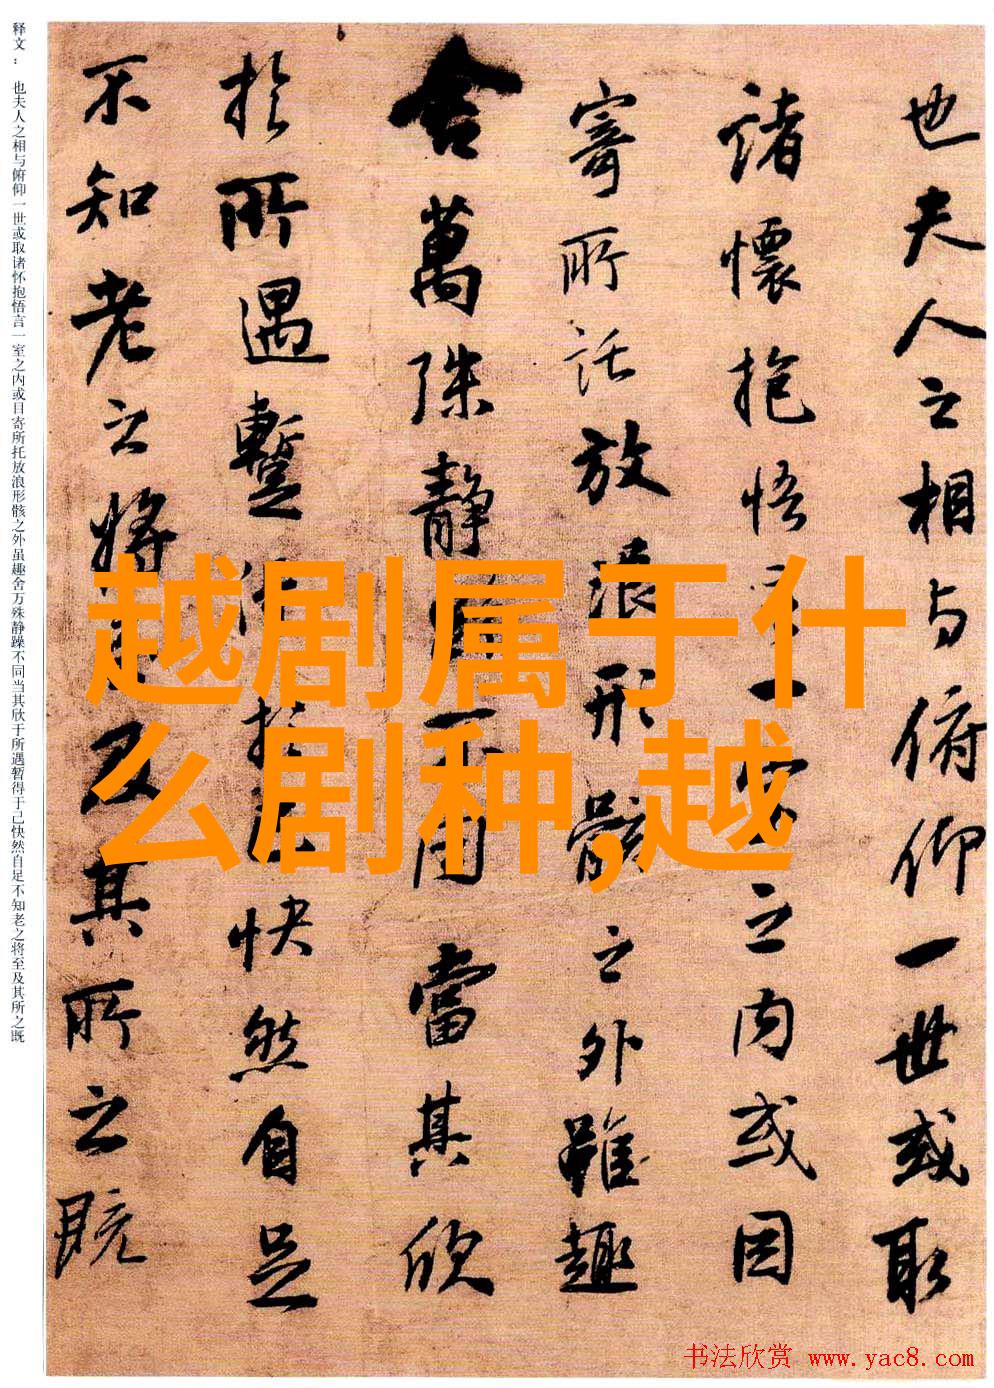 也夫人之相与俯仰一世或取
諸懷抱悟言一室之内或因
寄所託放浪形骸之外雖趣
舍萬殊静躁不同當其欣
於所遇蹔得於己快然自足
不知老之將至及其所之既
释文： 也夫人之相与俯仰一世或取诸怀抱悟言一室之内或目寄所托放浪形骸之外虽趣舍万殊静躁不同当其欣于所遇暂得于己快然自足不知老之将至及其所之既
越剧属于什
么剧种,越
书法欣赏 www.yac8.com